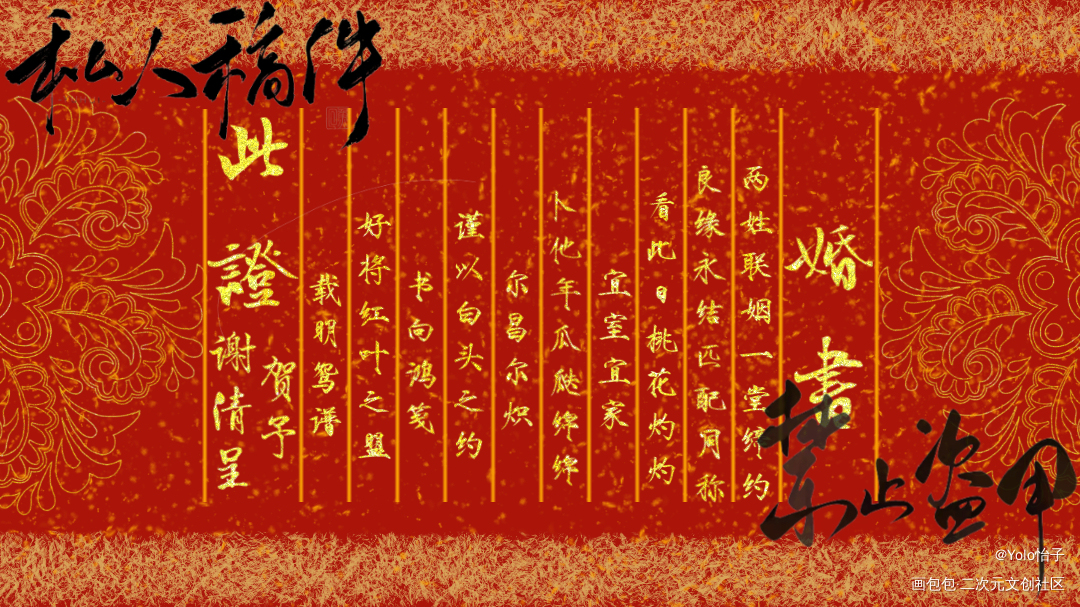 私人稿件
婚書
两姓联姻一堂缔约
良缘永结匹配同称
看此日桃花灼灼
宜室宜家
卜他年瓜瓞绵绵
尔昌尔炽
谨以白头之约
书向鸿笺
好将红叶之盟
载明鸳谱
此證
贺予
谢清呈
禁止盗用
@Yolo怡子
画包包·二次元文创社区